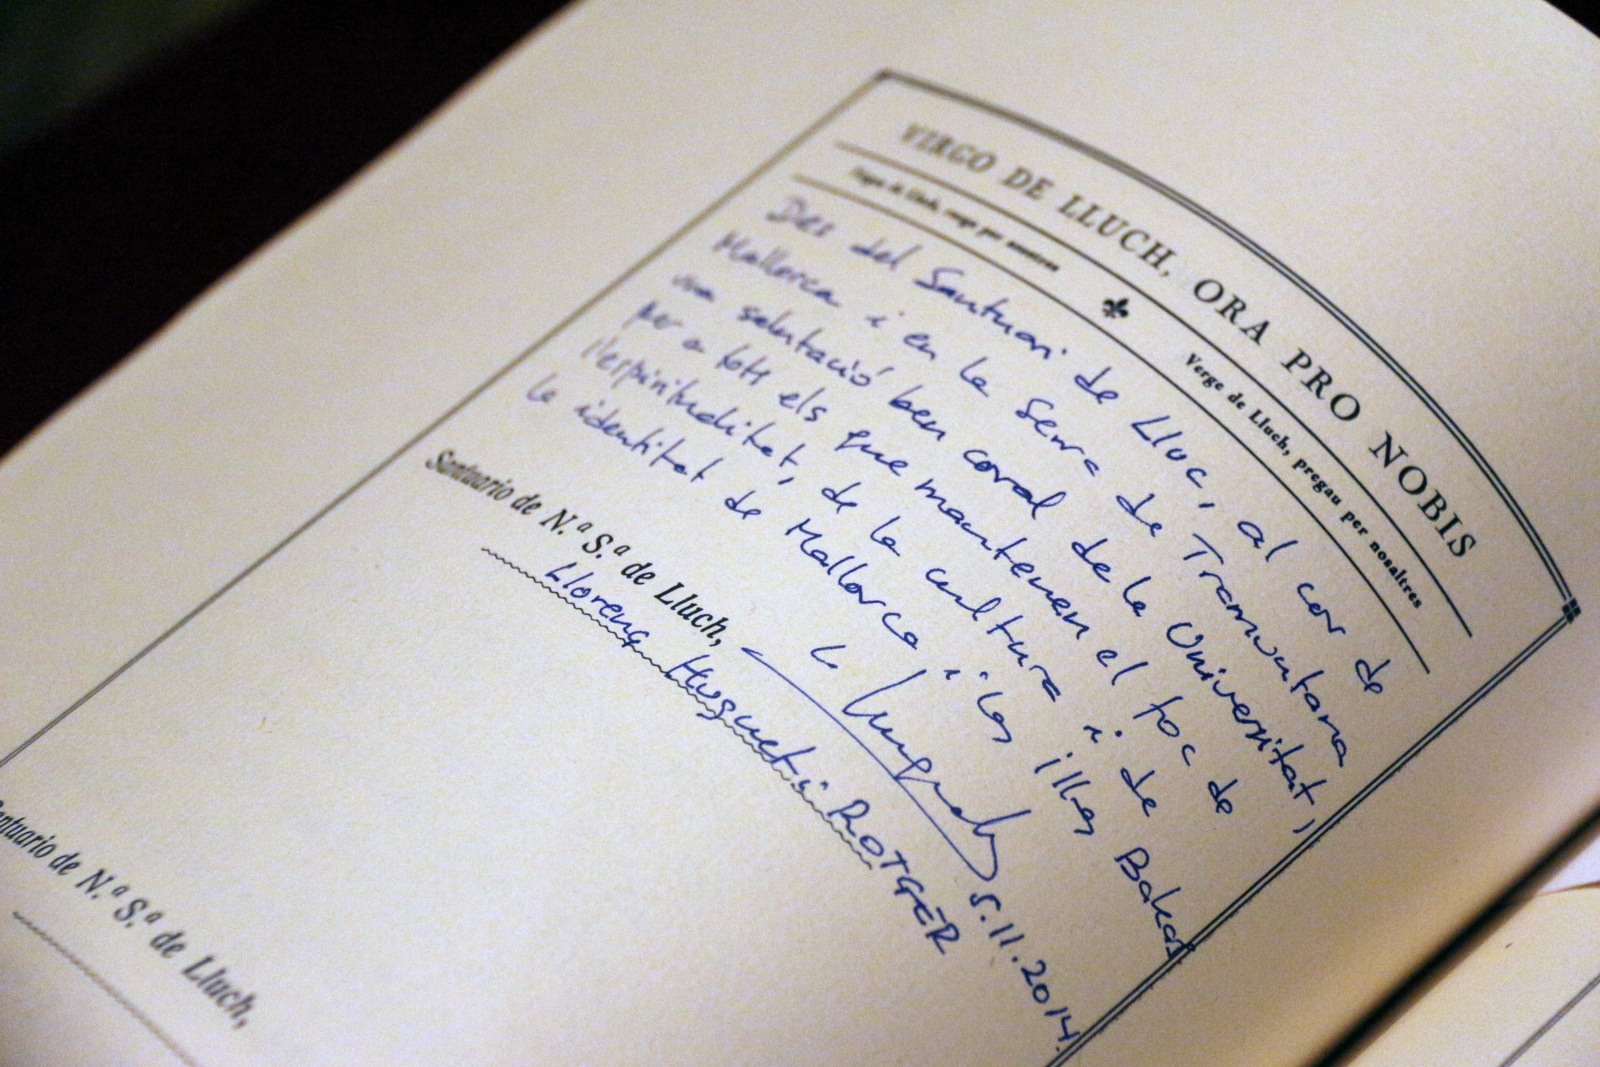 VIRGO DE LLUCH, ORA PRO NOBIS
Verge de Lluch, pregau per nosaltres
Des del Santuari de Lluc, al cor de
Mallorca i en la Serra de Tramuntana
una salutació ben coral de la Universitat,
per a tots els que mantenen el toc de
l'espiritualitat, de la cultura i de
la identitat de Mallorca i les illes Balears
Santuario de N.ª S.ª de Lluch,
5.11.2014.
Llorenç Huguet i ROTGER
Santuario de N.ª S.ª de Lluch,